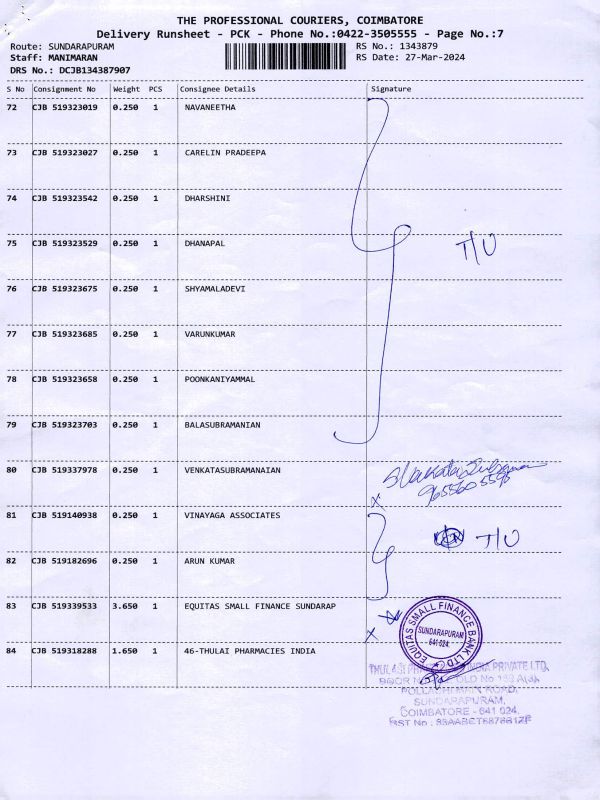 THE PROFESSIONAL COURIERS, COIMBATORE
Delivery Runsheet - PCK - Phone No.:0422-3505555 - Page No.:7
Route: SUNDARAPURAM RS No.: 1343879
Staff: MANIMARAN RS Date: 27-Mar-2024
DRS No.: DCJB134387907
S No Consignment No Weight PCS Consignee Details Signature
72 CJB 519323019 0.250 1 NAVANEETHA
73 CJB 519323027 0.250 1 CARELIN PRADEEPA
74 CJB 519323542 0.250 1 DHARSHINI
75 CJB 519323529 0.250 1 DHANAPAL T/U
76 CJB 519323675 0.250 1 SHYAMALADEVI
77 CJB 519323685 0.250 1 VARUNKUMAR
78 CJB 519323658 0.250 1 POONKANIYAMMAL
79 CJB 519323703 0.250 1 BALASUBRAMANIAN
80 CJB 519337978 0.250 1 VENKATASUBRAMANAIAN
81 CJB 519140938 0.250 1 VINAYAGA ASSOCIATES T/U
82 CJB 519182696 0.250 1 ARUN KUMAR
83 CJB 519339533 3.650 1 EQUITAS SMALL FINANCE SUNDARAP
EQUITAS SMALL FINANCE BANK LTD
SUNDARAPURAM
641 024.
84 CJB 519318288 1.650 1 46-THULAI PHARMACIES INDIA
PRIVATE LTD,
POLLACHI MAIN ROAD,
SUNDARAPURAM,
COIMBATORE - 641 024.